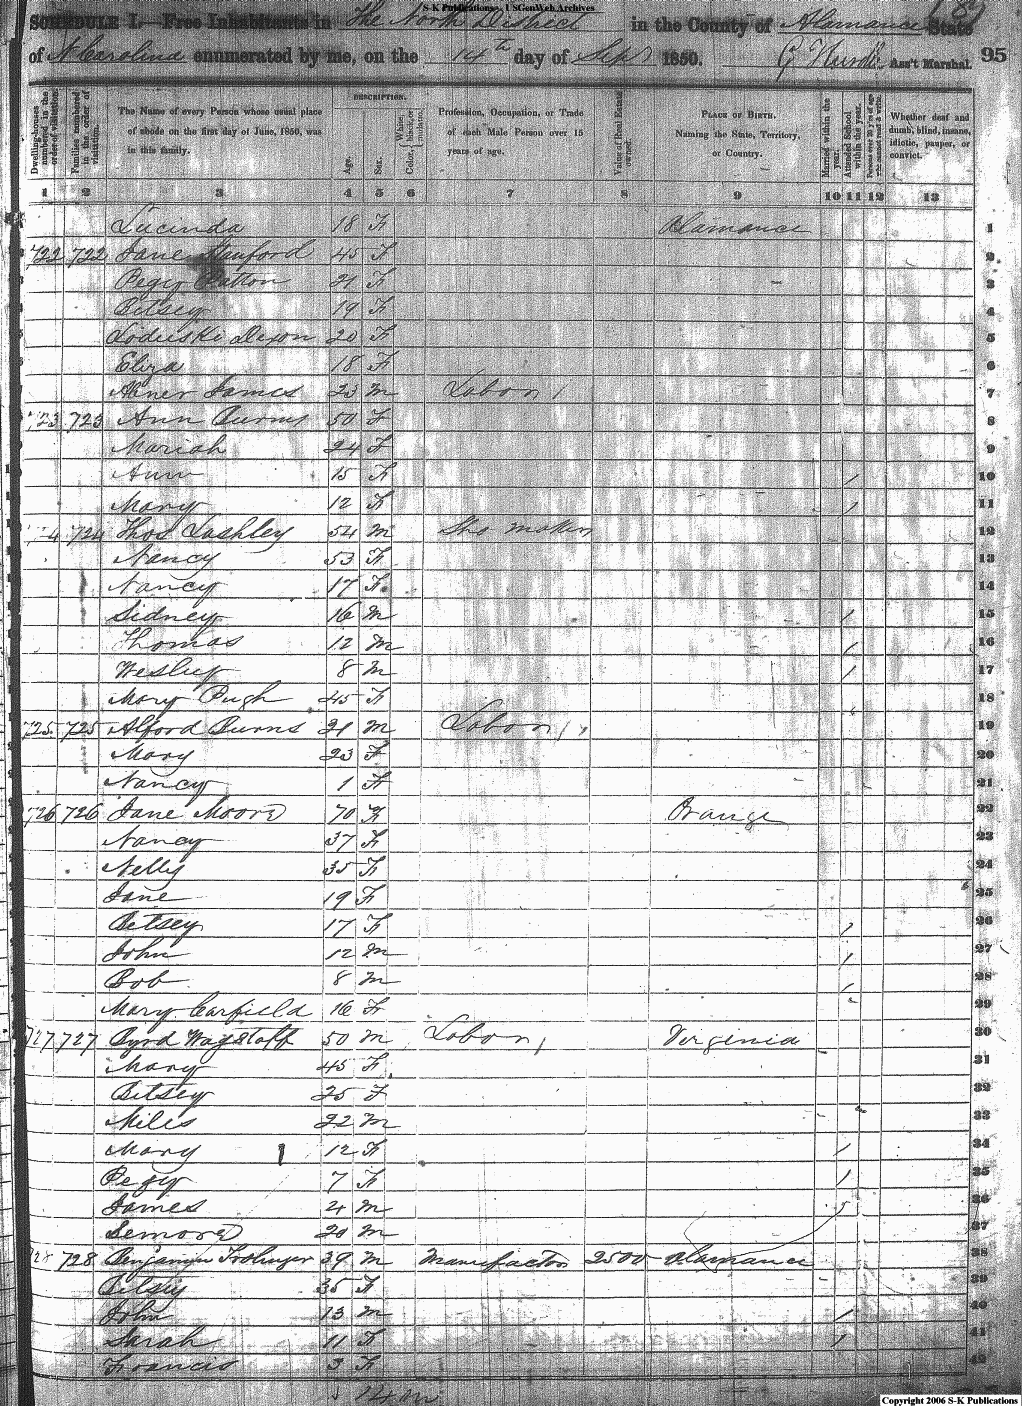 S-K Publications - USGenWeb Archives
SCHEDULE I.—Free Inhabitants in The North District in the County of Alamance State
of N Carolina enumerated by me, on the 14th day of Sept 1850. Ass't Marshal. 95
DESCRIPTION.
Dwelling-houses numbered in the order of visitation. Families numbered in the order of visitation. The Name of every Person whose usual place of abode on the first day of June, 1850, was in this family. Age. Sex. Color, White, black, or mulatto. Profession, Occupation, or Trade of each Male Person over 15 years of age. Value of Real Estate owned. PLACE OF BIRTH. Naming the State, Territory, or Country. Married within the year. Attended School within the year. Persons over 20 y'rs of age who cannot read & write. Whether deaf and dumb, blind, insane, idiotic, pauper, or convict.
1 2 3 4 5 6 7 8 9 10 11 12 13
Lucinda 18 F Alamance 1
722 722 Jane 45 F 2
Pegy Patton 21 F 3
Betsey 19 F 4
Loduski Dixon 20 F 5
Eliza 18 F 6
Abner James 23 m Labor 7
723 723 Ann Burns 50 F 8
Mariah 24 F 9
Ann 15 F / 10
Mary 12 F / 11
724 724 Thos Lashley 54 m Sho maker 12
Nancy 53 F 13
Nancy 17 F 14
Sidney 16 m / 15
Thomas 12 m / 16
Wesley 8 m / 17
Mary Pugh 45 F 18
725 725 Alford Burns 21 m Labor 19
Mary 23 F 20
Nancy 1 F 21
726 726 Jane Moore 70 F Orange 22
Nancy 37 F 23
Nelly 35 F 24
Jane 19 F 25
Betsey 17 F / 26
John 12 m / 27
Bob 8 m / 28
Mary Carfield 16 F 29
727 727 Byrd Wagstaff 50 m Labor Virginia 30
Mary 45 F 31
Betsey 25 F 32
Miles 22 m 33
Mary 12 F / 34
Pegy 7 F / 35
James 4 m 36
20 m 37
728 728 Benjamin Trolinger 39 m Manufactor 2500 Alamance 38
Betsey 35 F 39
John 13 m / 40
Sarah 11 F / 41
Francis 3 F 42
Copyright 2006 S-K Publications